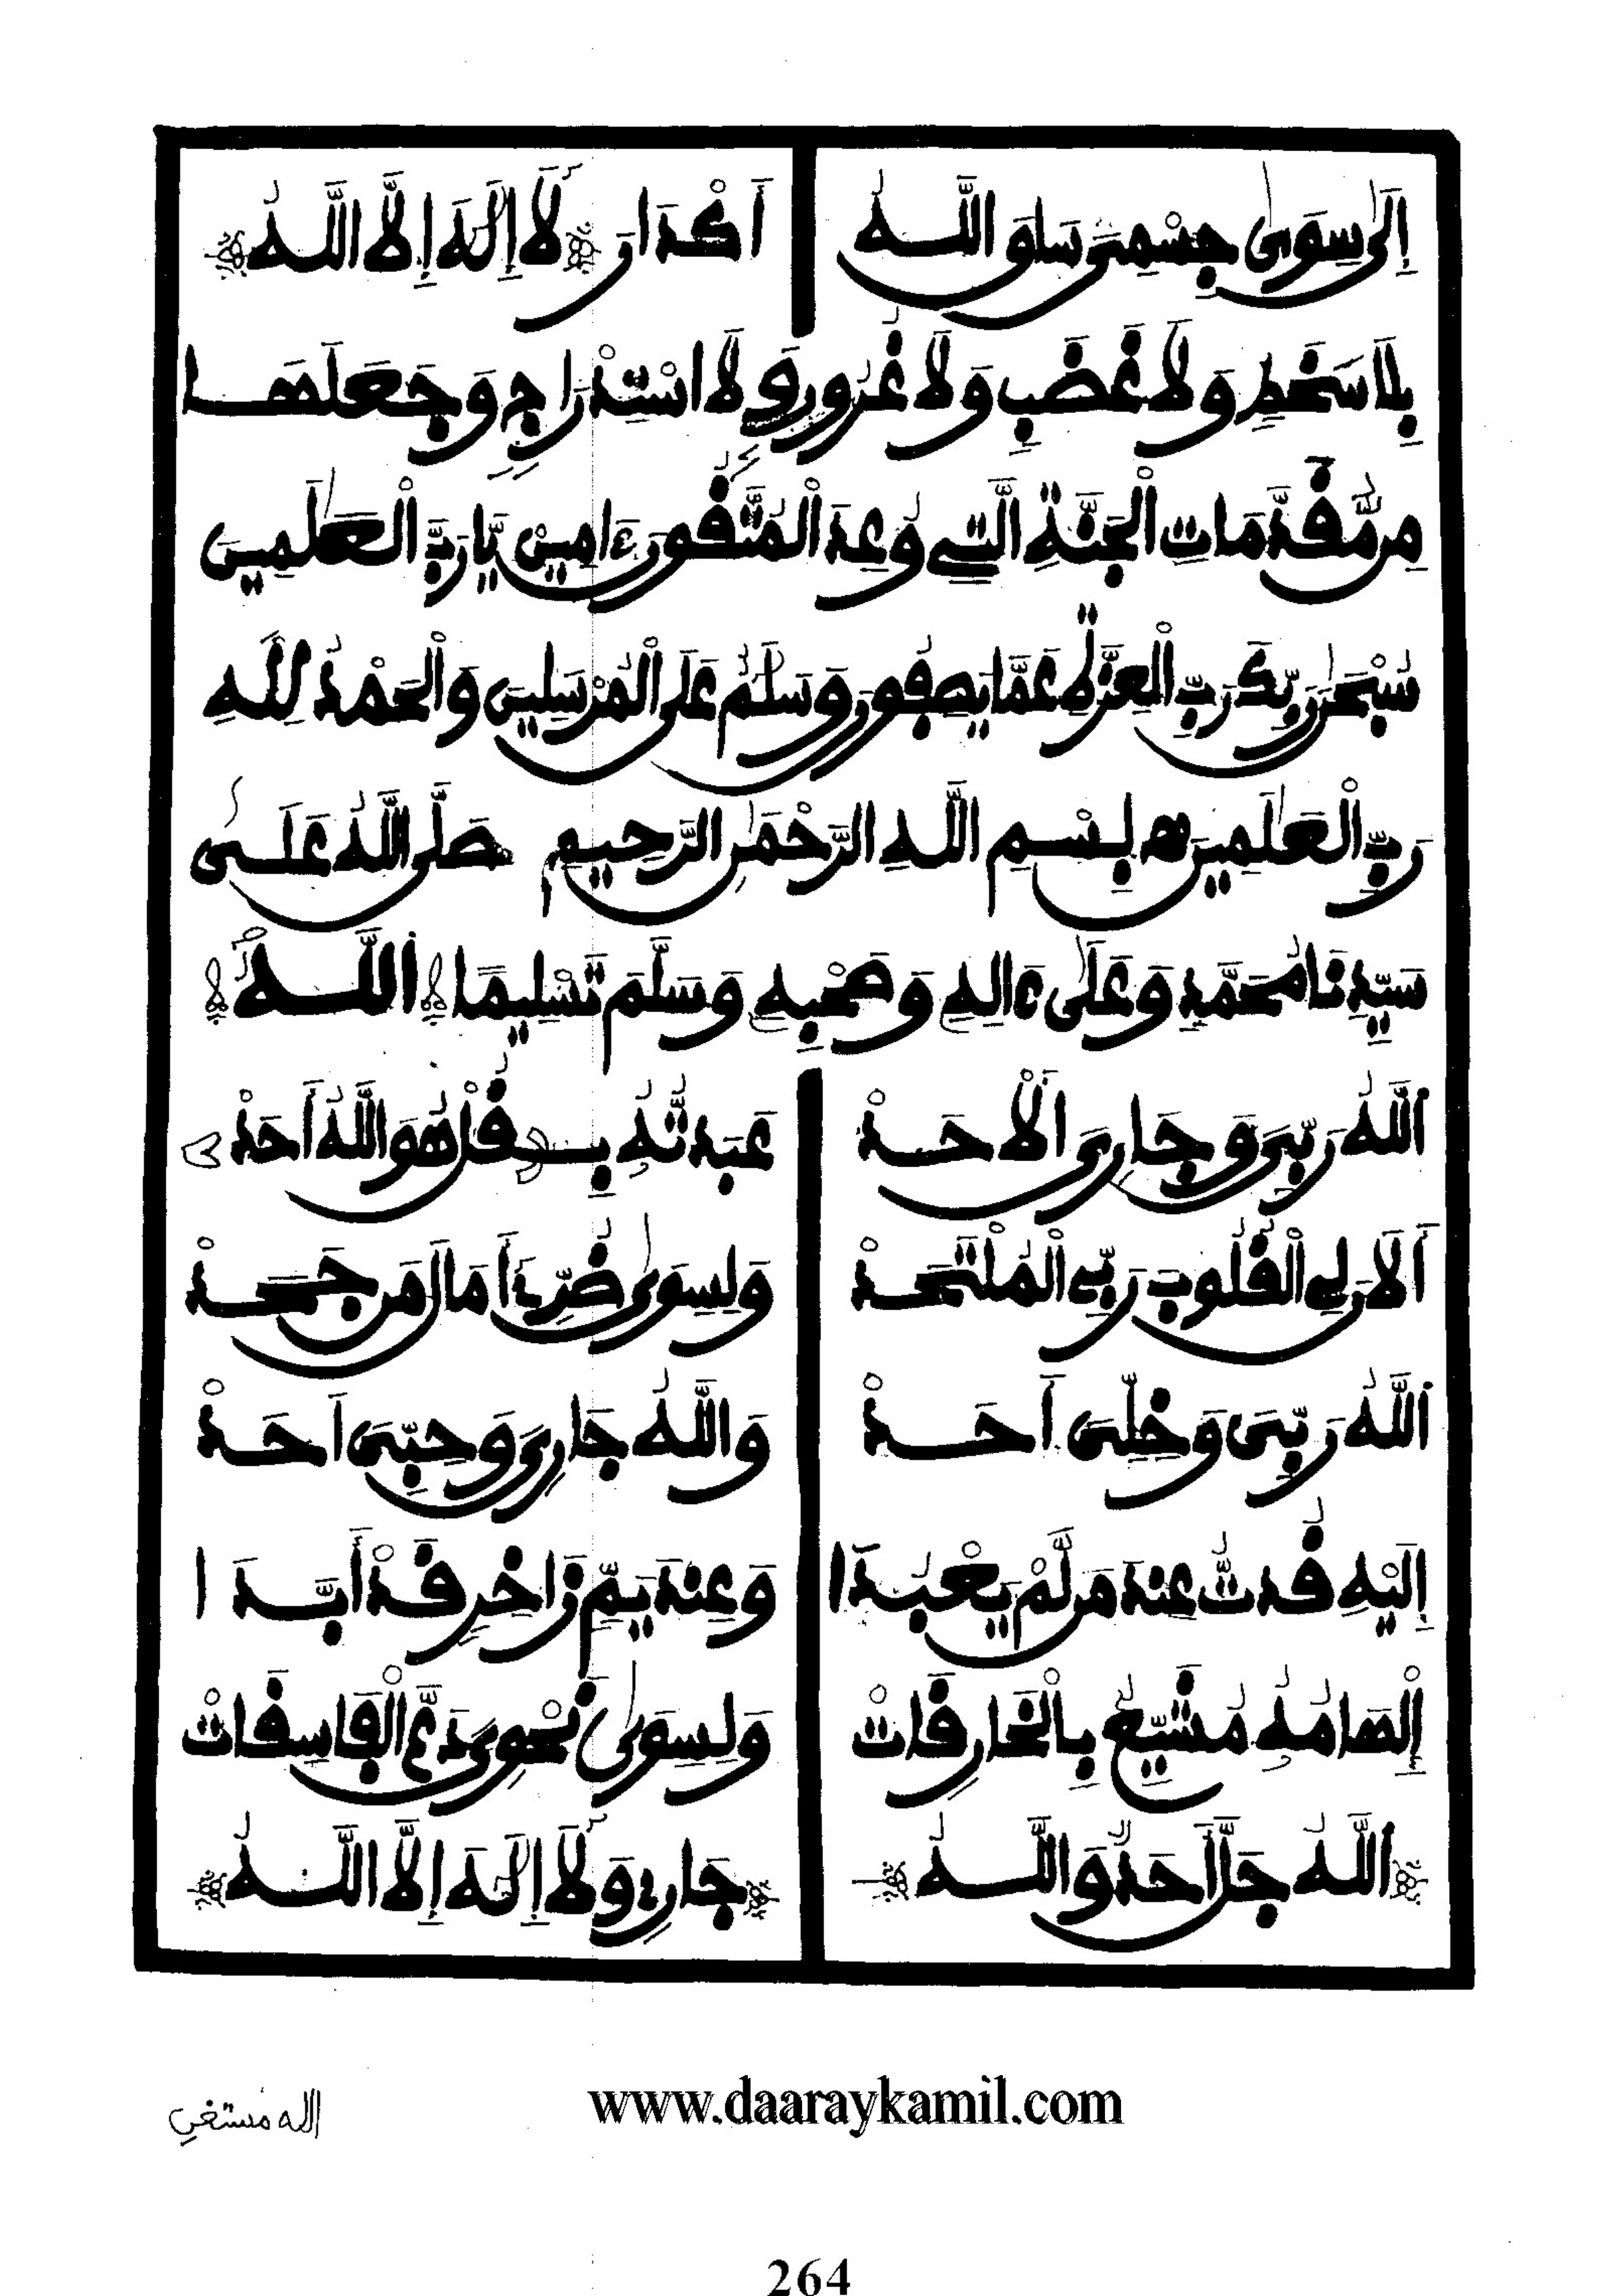 إِلَى سِوَى جِسْمِي سَاقَ اللَّهُ أَكْدَارِي لَا إِلَهَ إِلَّا اللَّهُ
بِلَا سَخَطٍ وَلَا غَضَبٍ وَلَا غُرُورٍ وَلَا اسْتِدْرَاجٍ وَجَعَلَهَا
مِن مُّقَدَّمَاتِ الْجَنَّةِ الَّتِي وُعِدَ الْمُتَّقُونَ ءَامِينَ يَا رَبَّ الْعَالَمِينَ
سُبْحَانَ رَبِّكَ رَبِّ الْعِزَّةِ عَمَّا يَصِفُونَ وَسَلَامٌ عَلَى الْمُرْسَلِينَ وَالْحَمْدُ لِلَّهِ
رَبِّ الْعَالَمِينَ بِسْمِ اللَّهِ الرَّحْمَنِ الرَّحِيمِ صَلَّى اللَّهُ عَلَى
سَيِّدِنَا مُحَمَّدٍ وَعَلَى ءَالِهِ وَصَحْبِهِ وَسَلَّمَ تَسْلِيمًا اللَّهُ
اللَّهُ رَبِّي وَجَارِيَ الْأَحَدْ عَبَدتُّهُ بِقُلْ هُوَ اللَّهُ أَحَدْ
أَلَانَ لِي الْقُلُوبَ رَبِّي الْمُلْتَحَدْ وَلِسِوَى ضُرِّي أَمَالَ مَن جَحَدْ
اللَّهُ رَبِّي وَخِلِّي أَحَدْ وَاللَّهُ جَارِي وَحِبِّي أَحَدْ
إِلَيْهِ قُدتُّ عِندَ مَن لَّمْ يَعْبُدَا وَعِندَ يَمٍّ زَاخِرٍ قَدْ أَبَّدَا
إِلْهَامُهُ مُشَيِّعٌ بِالْخَارِقَاتْ وَلِسِوَى نَحْوِي دَعَّ الْفَاسِقَاتْ
اللَّهُ جَلَّ أَحَدٌ وَاللَّهُ جَارِي وَلَا إِلَهَ إِلَّا اللَّهُ
www.daaraykamil.com
الله مستغني
264